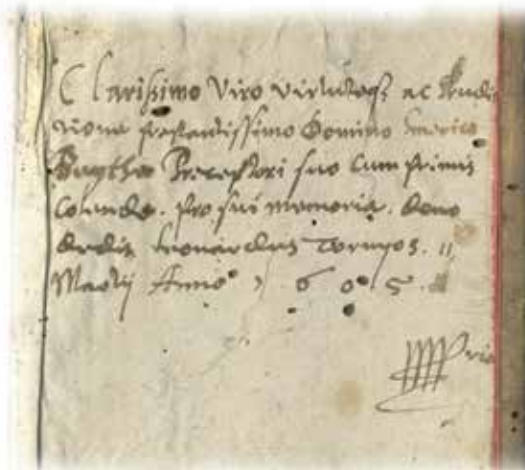 Clarissimo Viro virtuteq; ac erudi
tione prestantissimo Domino Emerico
Preceptori suo cum primis
colendo. pro sui memoria. dono
dedit Leonardus Tornyos. 11
Martij Anno 1605.